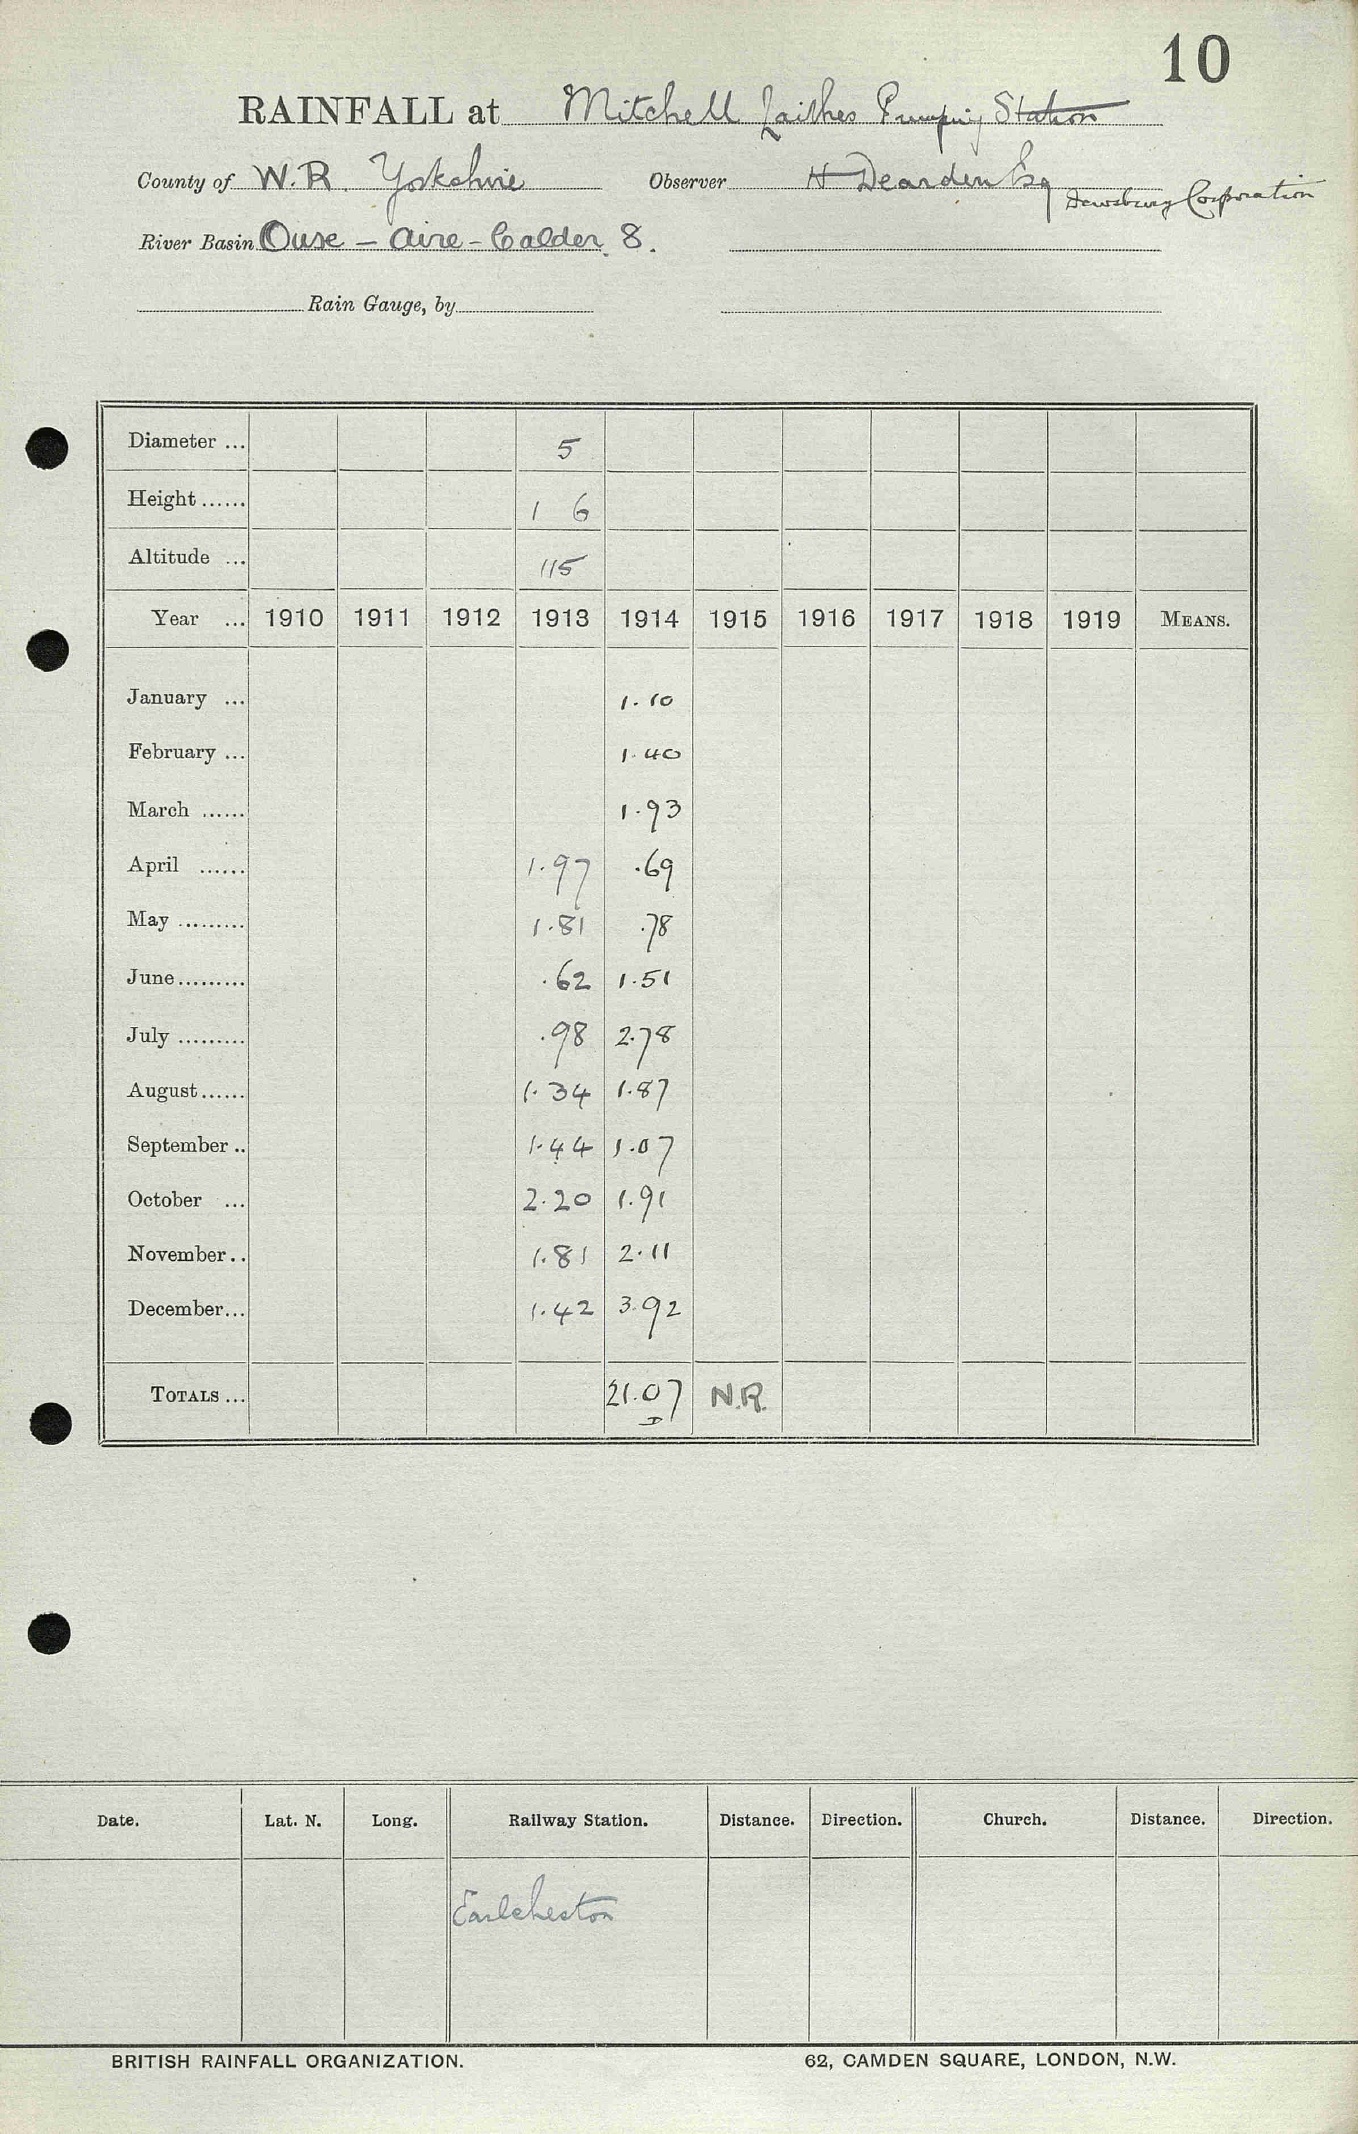 10
RAINFALL at Mitchell Laithes Pumping Station
County of W.R. Yorkshire Observer H Dearden Esq
Dewsbury Corporation
River Basin Ouse - Aire - Calder 8.
Rain Gauge, by
Diameter ... 5
Height ...... 1 6
Altitude ... 115
Year ... 1910 1911 1912 1913 1914 1915 1916 1917 1918 1919 MEANS.
January ... 1.10
February ... 1.40
March ...... 1.93
April ...... 1.97 .69
May ......... 1.81 .78
June ......... .62 1.51
July ......... .98 2.78
August ...... 1.34 1.87
September .. 1.44 1.07
October ... 2.20 1.91
November .. 1.81 2.11
December ... 1.42 3.92
TOTALS ... 21.07 N.R.
D
Date. Lat. N. Long. Railway Station. Distance. Direction. Church. Distance. Direction.
Earlcheston
BRITISH RAINFALL ORGANIZATION. 62, CAMDEN SQUARE, LONDON, N.W.